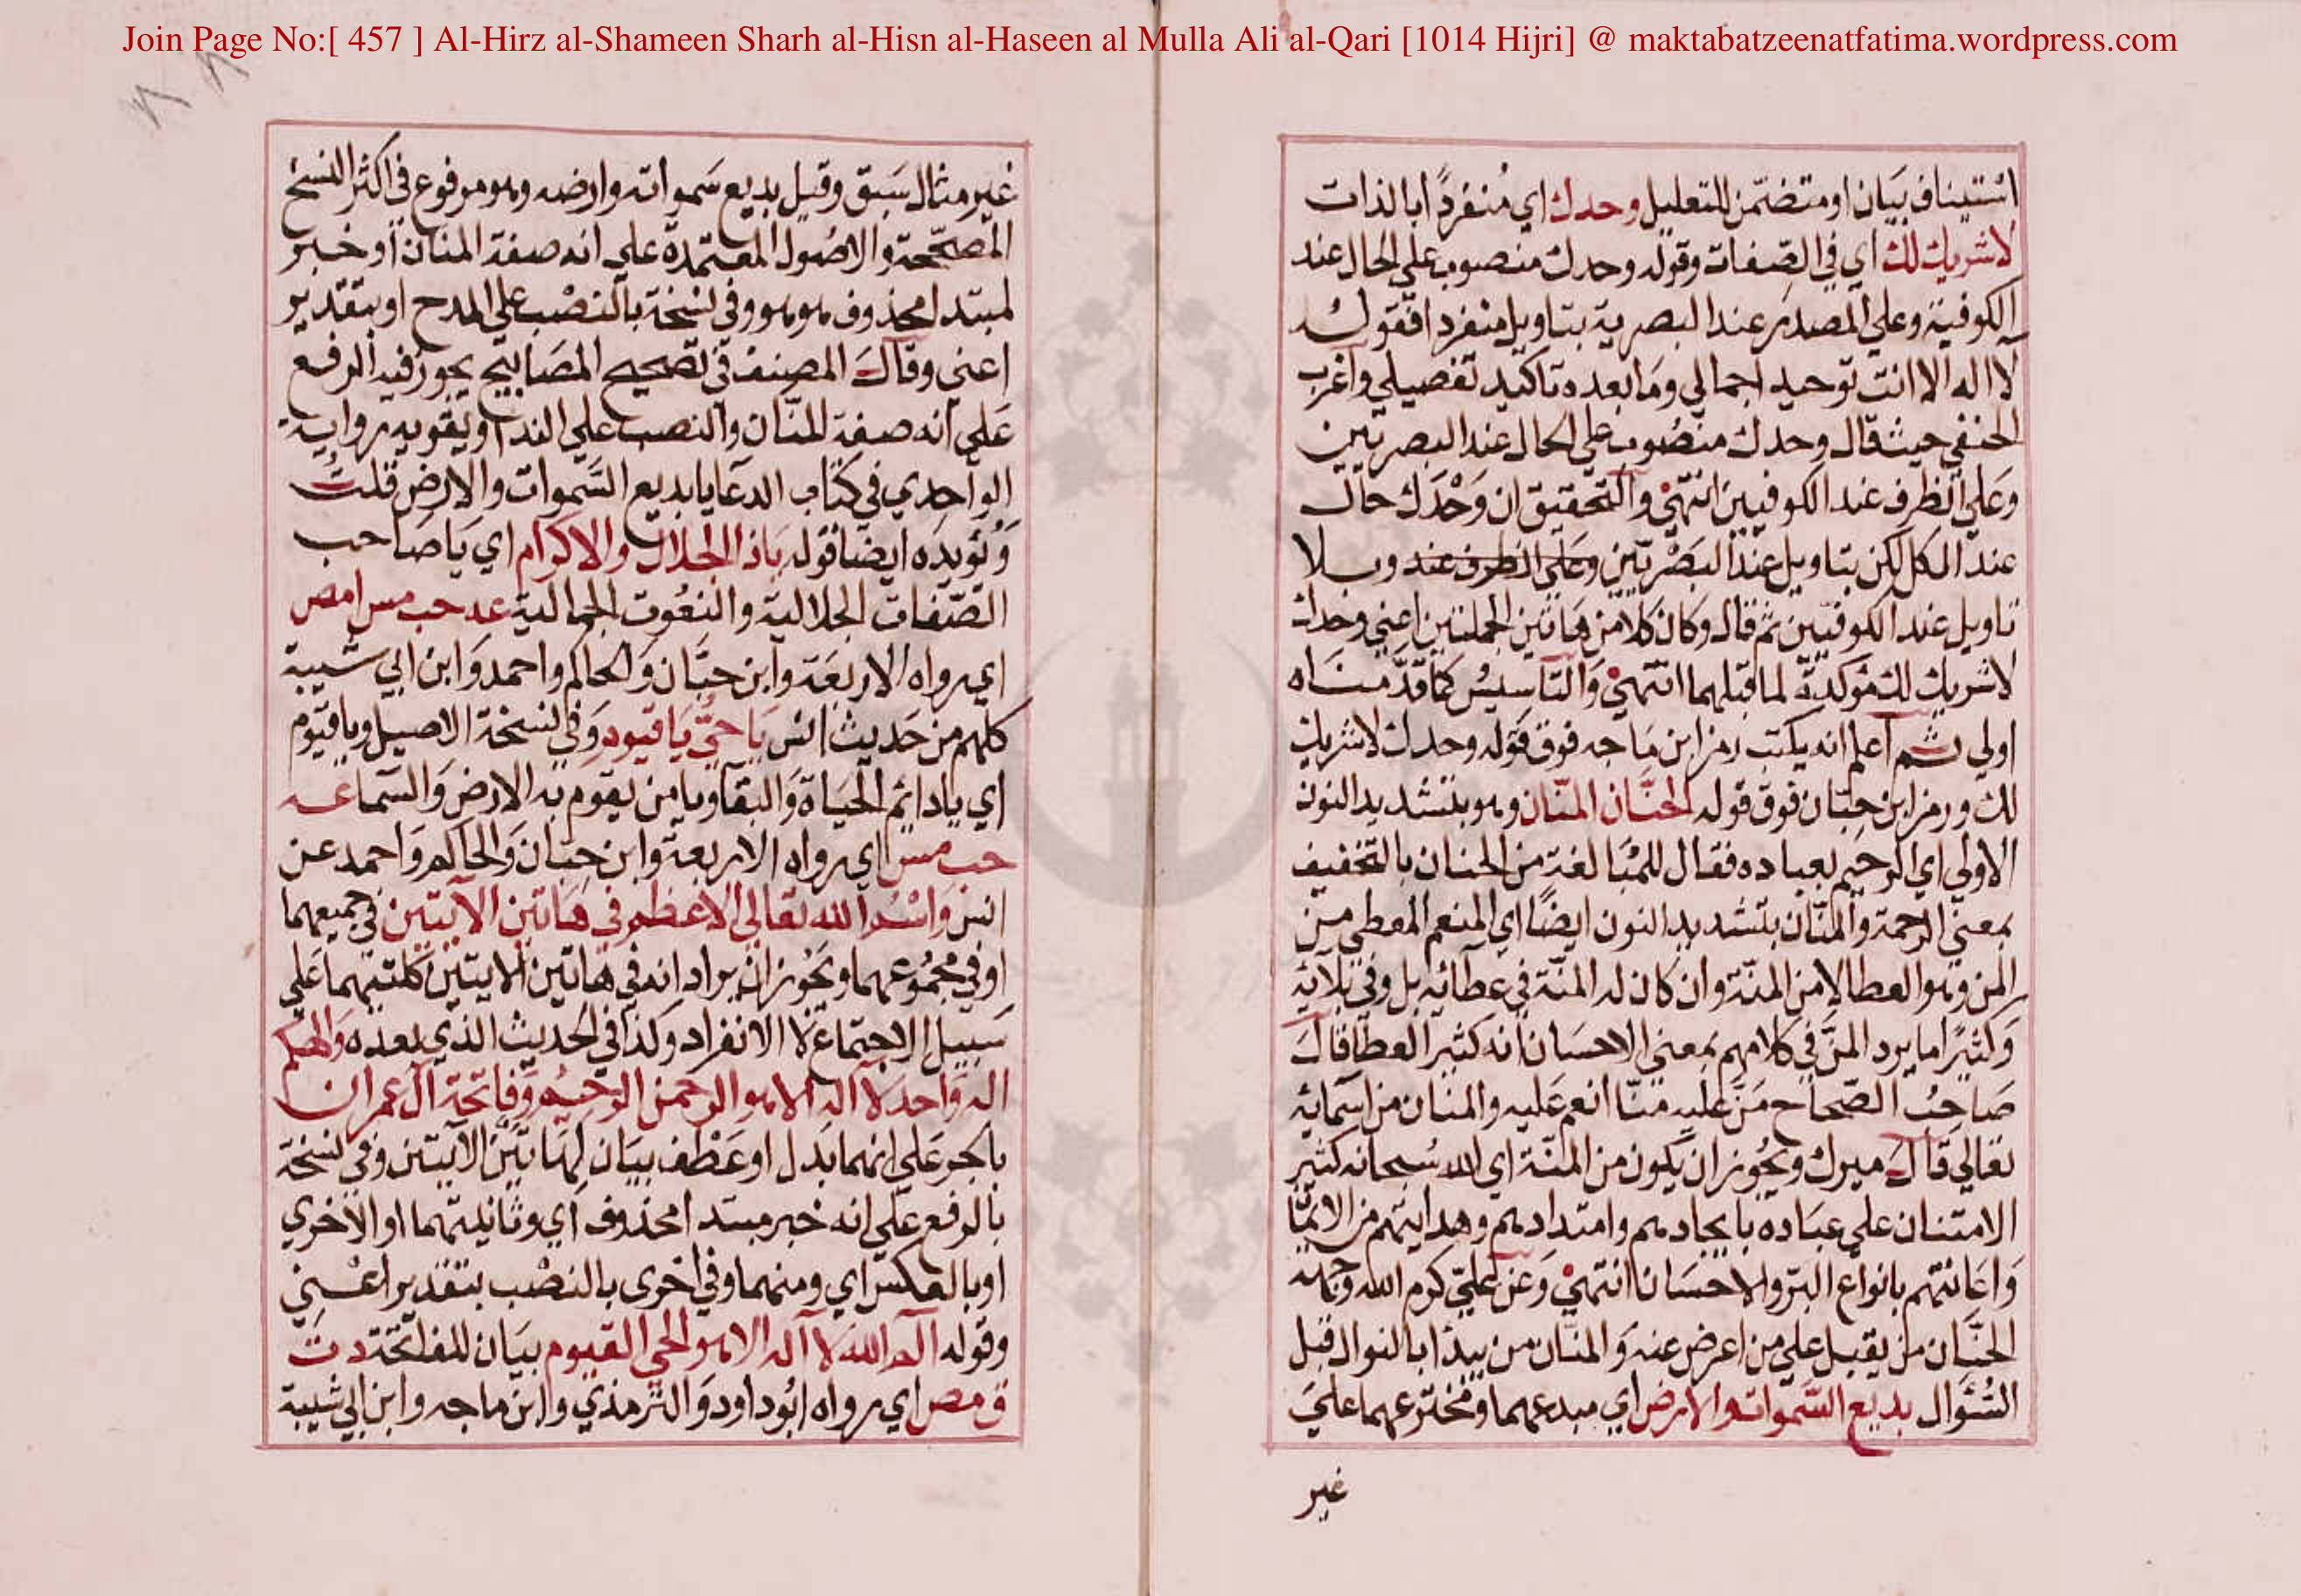 Join Page No:[ 457 ] Al-Hirz al-Shameen Sharh al-Hisn al-Haseen al Mulla Ali al-Qari [1014 Hijri] @ maktabatzeenatfatima.wordpress.com
استيناف بيان او متضمن للتعليل وحدك اي منفردًا بالذات
لا شريك لك اي في الصفات وقوله وحدك منصوب علي الحال عند
الكوفية وعلي المصدر عند البصرية بتاويل منفردا فقوله
لا اله الا انت توحيد اجمالي وما بعده تاكيد تفصيلي واغرب
الحنفي حيث قال وحدك منصوب علي الحال عند البصريين
وعلي الظرف عند الكوفيين انتهي والتحقيق ان وحدك حال
عند الكل لكن بتاويل عند البصريين وعلي الظرف عند وبلا
تاويل عند الكوفيين ثم قال وكان كلا من هاتين الجملتين اعني وحدك
لا شريك لك مؤكدة لما قبلهما انتهي والتاسيس كما قدمناه
اولي ثم اعلم انه يكتب رمز ابن ماجه فوق قوله وحدك لا شريك
لك ورمز ابن حبان فوق قوله الحنان المنان وهو بتشديد النون
الاولي اي الرحيم بعباده فعال للمبالغة من الحنان بالتخفيف
بمعني الرحمة والمنان بتشديد النون ايضًا اي المنعم المعطي من
المن وهو العطا لا من المنة وان كان له المنة في عطائه بل وفي بلائه
وكثيرًا ما يرد المن في كلامهم بمعني الاحسان انه كثير العطا قال
صاحب الصحاح من عليه منّا انعم عليه والمنان من اسمائه
تعالي قال ميرك ويجوز ان يكون من المنة اي الله سبحانه كثير
الامتنان علي عباده بايجادهم وامتدادهم وهدايتهم من الايمان
واعانتهم بانواع البر والاحسان انتهي وعن علي كرم الله وجهه
الحنان من يقبل علي من اعرض عنه والمنان من يبدأ بالنوال قبل
السؤال بديع السموات والارض اي مبدعهما ومخترعهما علي
غير
غير مثال سبق وقيل بديع سمواته وارضه وهو مرفوع في اكثر النسخ
المصححة والاصول المعتمدة علي انه صفة المنان او خبر
لمبتدا محذوف هو هو وفي نسخة بالنصب علي المدح او بتقدير
اعني وقال المصنف في تصحيح المصابيح يجوز فيه الرفع
علي انه صفة المنان والنصب علي الندا ويقويه رواية
الواحدي في كتاب الدعا يا بديع السموات والارض قلت
ويؤيده ايضا قوله يا ذا الجلال والاكرام اي يا صاحب
الصفات الجلالية والنعوت الجمالية عه حب مس ا مص
اي رواه الاربعة وابن حبان والحاكم واحمد وابن ابي شيبة
كلهم من حديث انس يا حي يا قيوم وفي نسخة الاصيل ويا قيوم
اي يا دائم الحياة والبقا ويا من يقوم به الارض والسما عه
حب مس اي رواه الاربعة وابن حبان والحاكم واحمد عن
انس واسم الله تعالي الاعظم في هاتين الآيتين في جميعهما
او في مجموعهما ويجوز ان يراد انه في هاتين الايتين كلتيهما علي
سبيل الاجتماع لا الانفراد وكذا في الحديث الذي بعده والهكم
اله واحد لا اله الا هو الرحمن الرحيم وفاتحة آل عمران
بالجر علي انهما بدل او عطف بيان لهاتين الآيتين وفي نسخة
بالرفع علي انه خبر مبتدا محذوف اي وثانيتهما او الاخري
او بالعكس اي ومنهما وفي اخري بالنصب بتقدير اعني
وقوله الم الله لا اله الا هو الحي القيوم بيان للفاتحة د ت
ق مص اي رواه ابو داود والترمذي وابن ماجه وابن ابي شيبة